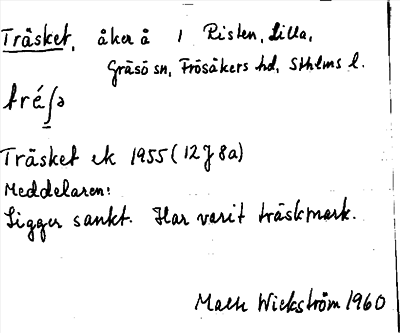 Träsket, åker å 1 Risten, Lilla,
Gräsö sn, Frösåkers hd, Sthlms l.
tré̱ʃə
Träsket ek 1955 (12J 8a)
Meddelaren:
Ligger sankt. Har varit träskmark.
Wickström 1960